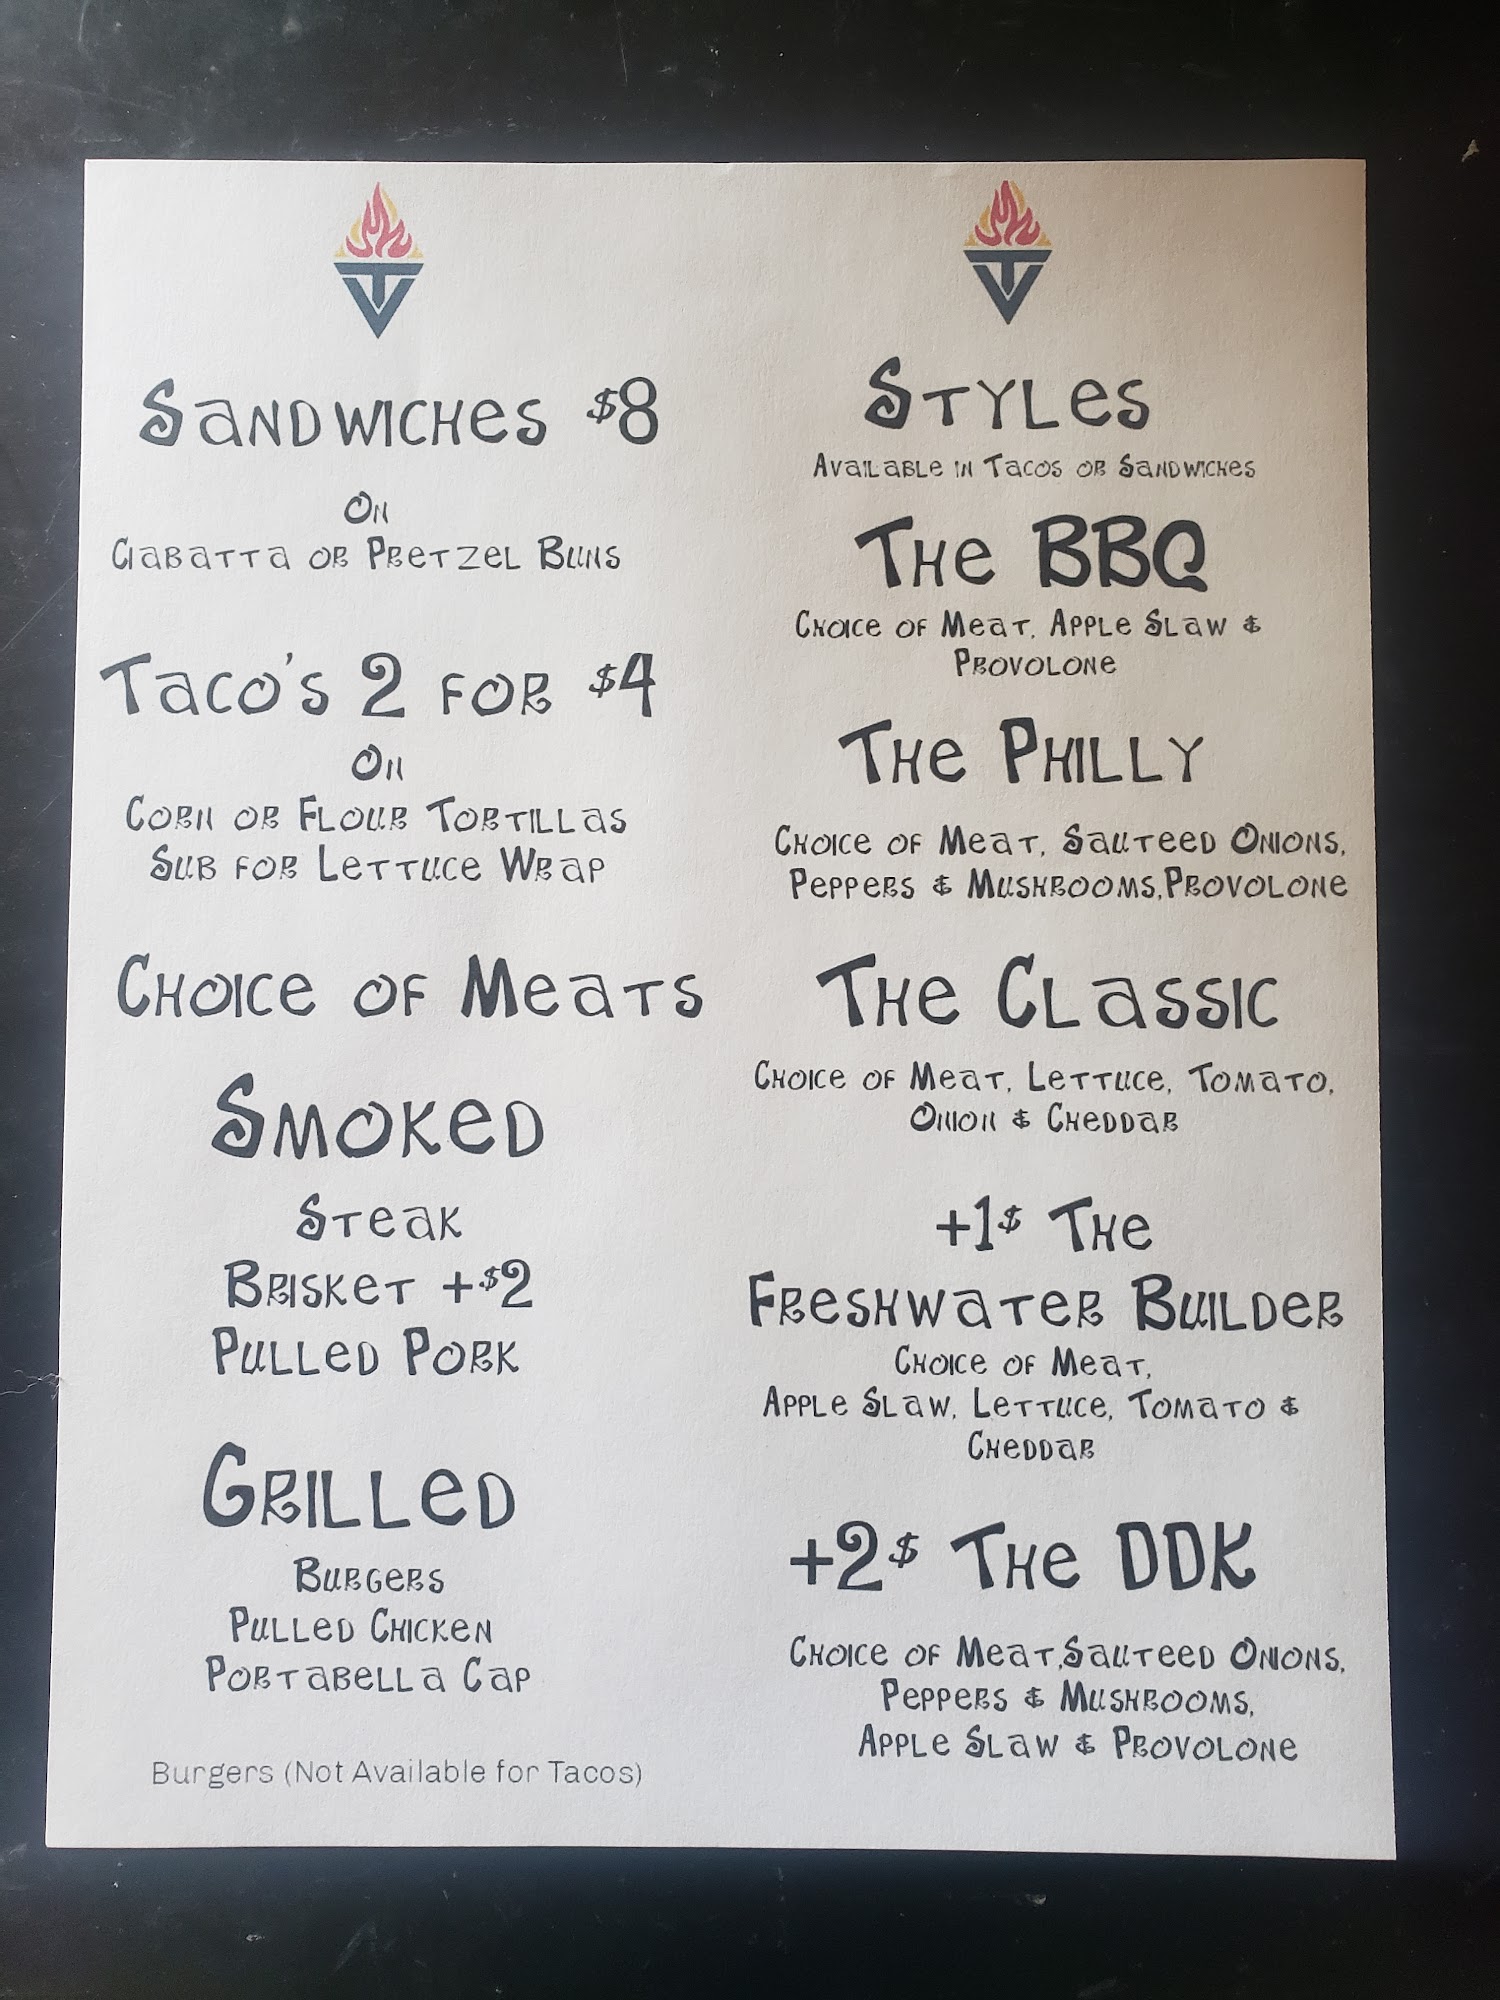 Sandwiches $8
On
Ciabatta or Pretzel Buns
Taco's 2 for $4
On
Corn or Flour Tortillas
Sub for Lettuce Wrap
Choice of Meats
Smoked
Steak
Brisket +$2
Pulled Pork
Grilled
Burgers
Pulled Chicken
Portabella Cap
Burgers (Not Available for Tacos)
Styles
Available in Tacos or Sandwiches
The BBQ
Choice of Meat, Apple Slaw &
Provolone
The Philly
Choice of Meat, Sauteed Onions,
Peppers & Mushrooms,Provolone
The Classic
Choice of Meat, Lettuce, Tomato,
Onion & Cheddar
+1$ The
Freshwater Builder
Choice of Meat,
Apple Slaw, Lettuce, Tomato &
Cheddar
+2$ The DDK
Choice of Meat,Sauteed Onions,
Peppers & Mushrooms,
Apple Slaw & Provolone